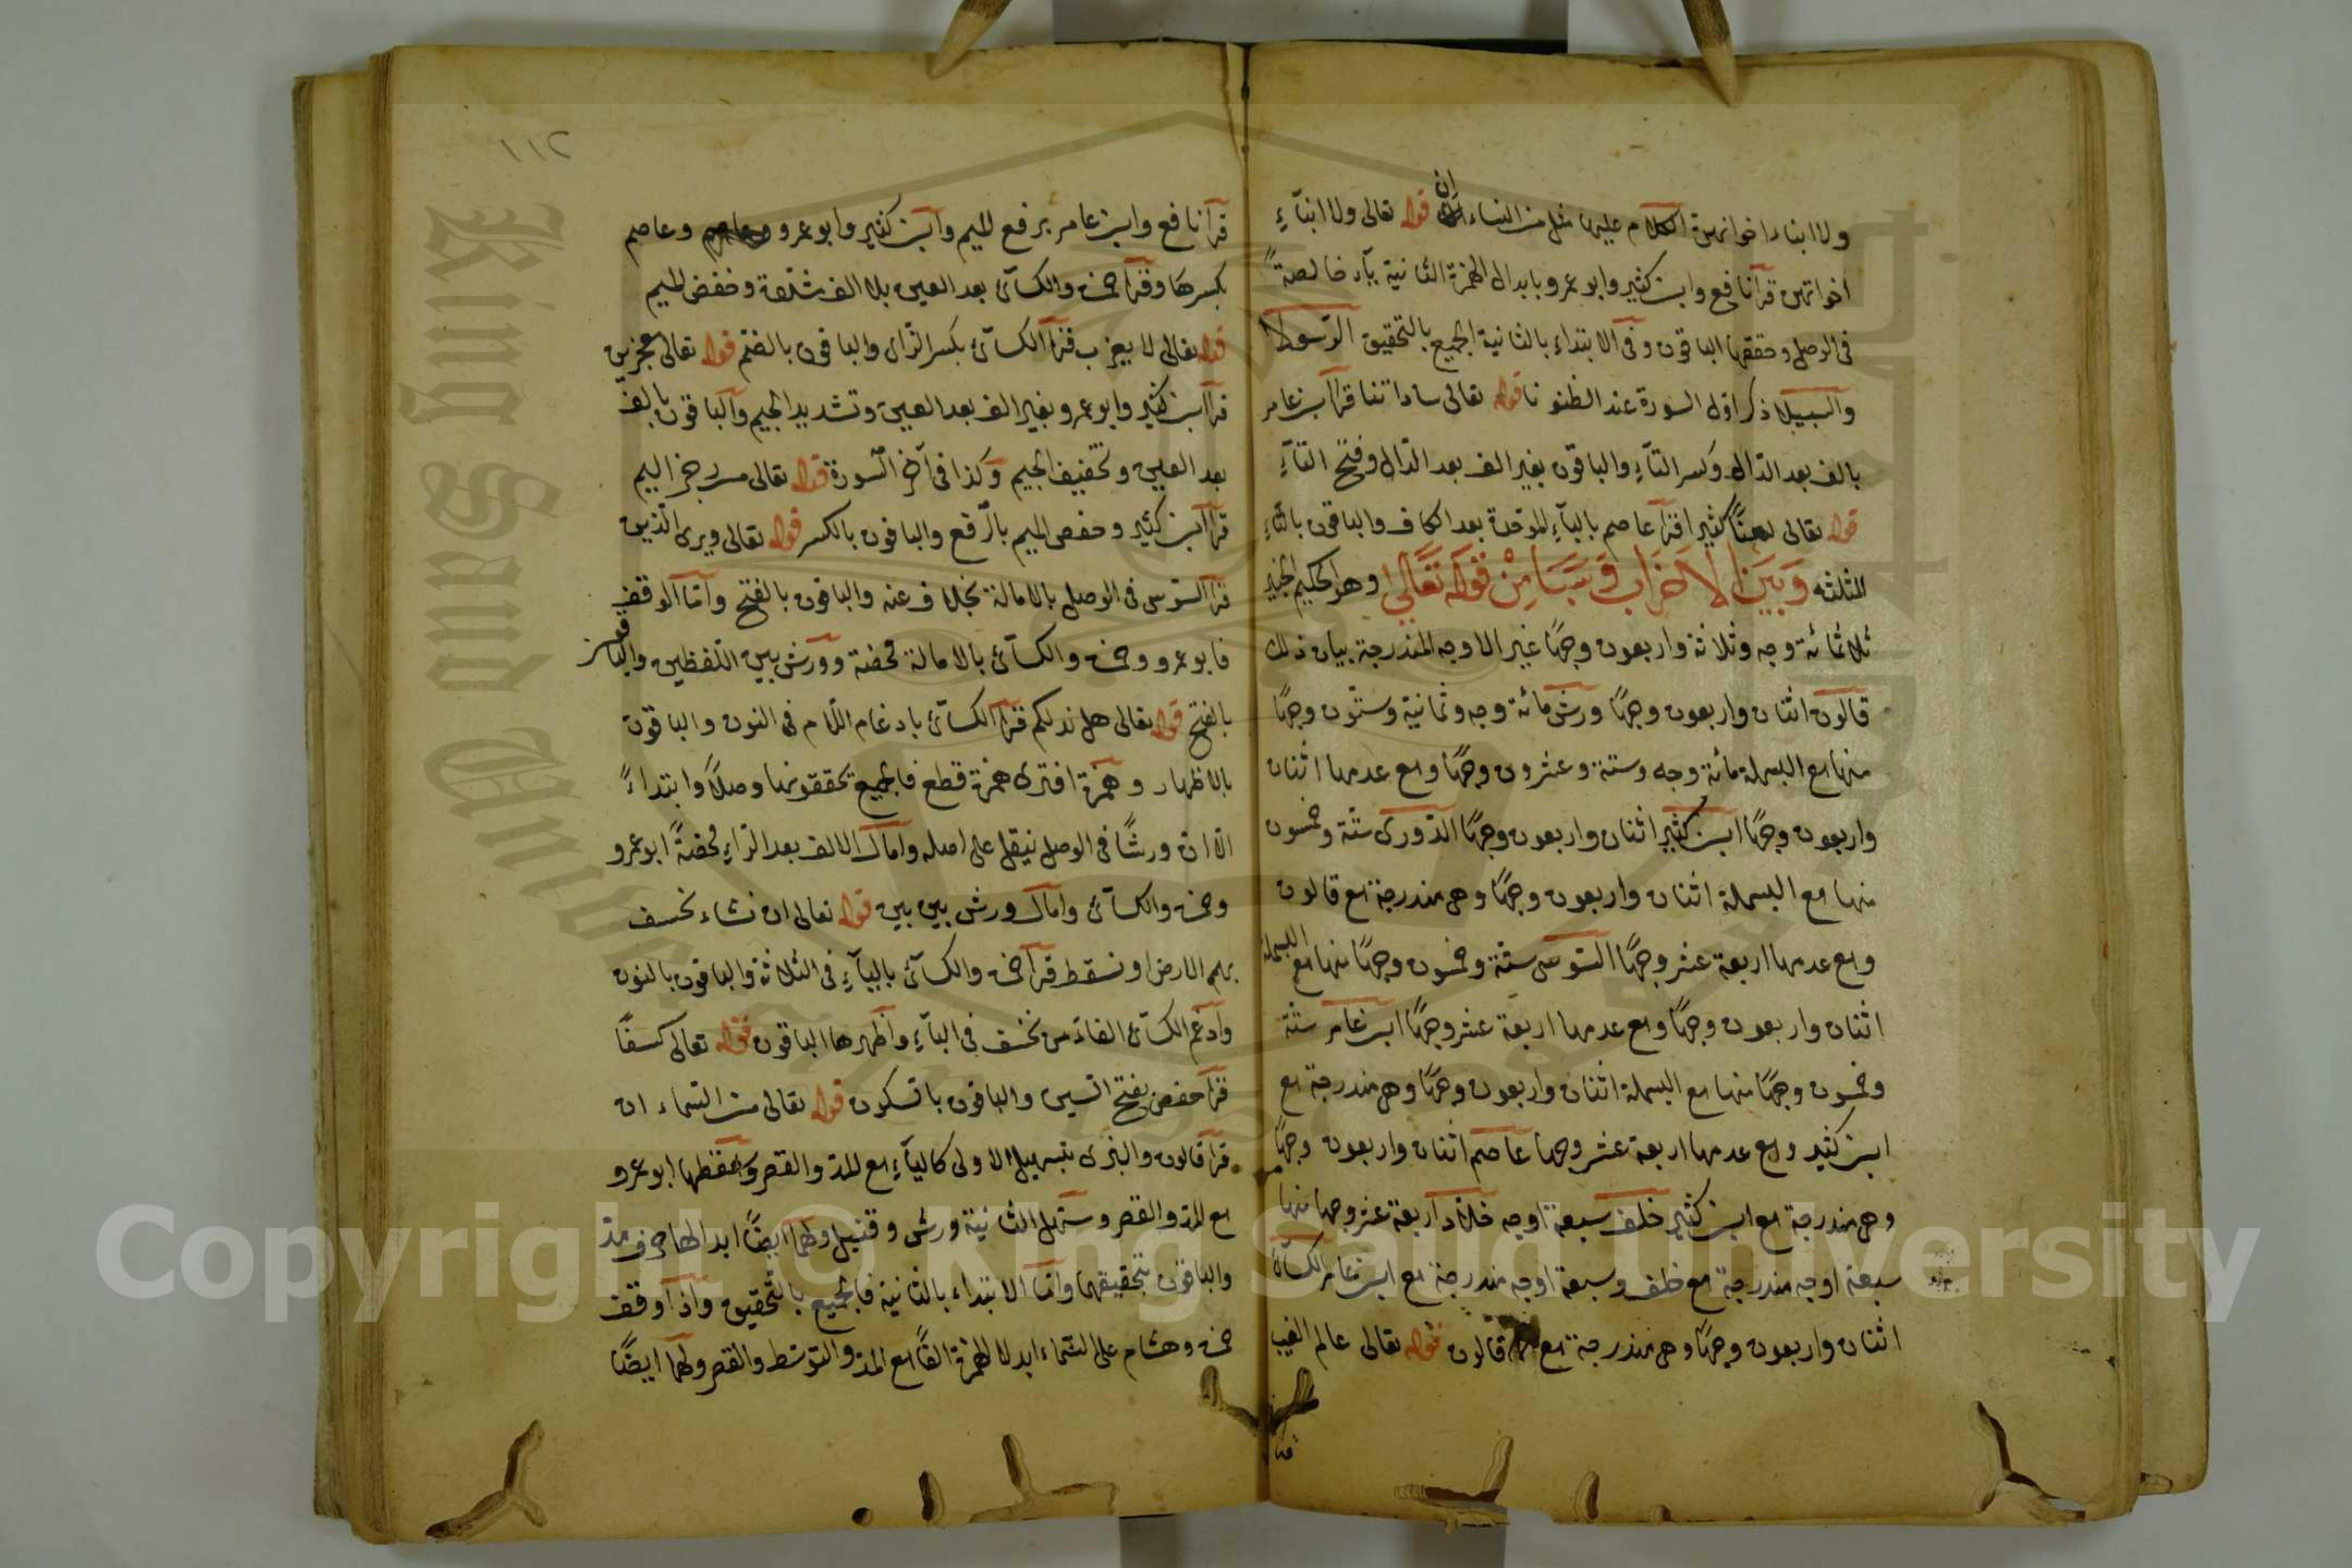 ولا ابناء اخواتهن الكلام عليها مثل من النساء ان قوله تعالى ولا ابنآءِ
اخواتهن قرأ نافع وابن كثير وابو عمرو بابدال الهمزة الثانية يآء خالصةً
فى الوصل وحققها الباقون وفى الابتداء بالثانية الجميع بالتحقيق الرسولا
والسبيلا ذكر اول السورة عند الظنونا قوله تعالى ساداتنا قرأ ابن عامر
بالف بعد الدال وكسر التآءِ والباقون بغير الف بعد الدال وفتح التآءِ
قوله تعالى لعنًا كثيرا قرأ عاصم بالبآءِ الموحدة بعد الكاف والباقون بالثاء
المثلثه وبين الاحزاب وسبا من قوله تعالى وهو الحكيم الخبير
ثلاثمائة وجه وثلاثة واربعون وجهًا غير الاوجه المندرجة بيان ذلك
قالون اثنان واربعون وجهًا ورش مائة وجه وثمانية وستون وجهًا
منها مع البسملة مائة وجه وستة وعشرون وجهًا ومع عدمها اثنان
واربعون وجهًا ابن كثير اثنان واربعون وجهًا الدورى ستة وخمسون
منها مع البسملة اثنان واربعون وجهًا وهى مندرجة مع قالون
ومع عدمها اربعة عشر وجهًا السوسى ستة وخمسون وجهًا منها مع البسملة
اثنان واربعون وجهًا ومع عدمها اربعة عشر وجهًا ابن عامر ستة
وخمسون وجهًا منها مع البسملة اثنان واربعون وجهًا وهى مندرجة مع
ابن كثير ومع عدمها اربعة عشر وجها عاصم اثنان واربعون وجهًا
وهى مندرجة مع ابن كثير خلف سبعة اوجه خلاد اربعة عشر وجها منها
سبعة اوجه مندرجة مع خلف وسبعة اوجه مندرجة مع ابن عامر الكسآئى
اثنان واربعون وجهًا وهى مندرجة مع قالون قوله تعالى عالم الغيب
١١٢
قرأ نافع وابن عامر برفع الميم وابن كثير وابو عمرو وعاصم
بكسرها وقرأ حمزه والكسآئى بعد العين بلا الف مثقلة وخفض الميم
قوله تعالى لا يعزب قرأ الكسآئى بكسر الزاى والباقون بالضم قوله تعالى معجزين
قرأ ابن كثير وابو عمرو بغير الف بعد العين وتشديد الجيم والباقون بالف
بعد العين وتخفيف الجيم وكذا فى آخر السورة قوله تعالى من رجز اليم
قرأ ابن كثير وحفص الميم بالرفع والباقون بالكسر قوله تعالى ويرى الذين
قرأ السوسى فى الوصل بالامالة بخلاف عنه والباقون بالفتح وامّا الوقف
فابو عمرو وحمزه والكسآئى بالامالة محضة وورش بين اللفظين والباقون
بالفتح قوله تعالى هل ندلكم قرأ الكسآئى بادغام اللام فى النون والباقون
بالاظهار وهمزة افترى همزة قطع فالجميع يحققونها وصلًا وابتداءً
الا ان ورشًا فى الوصل ينقل على اصله وامال الالف بعد الراءِ محضةً ابو عمرو
وحمزه والكسآئى وامال ورش بين بين قوله تعالى ان نشاء نخسف
بهم الارض او نسقط قرأ حمزه والكسآئى باليآءِ فى الثلاثة والباقون بالنون
وادغم الكسآئى الفاء من نخسف فى البآءِ واظهرها الباقون قوله تعالى كسفًا
قرأ حفص بفتح السين والباقون بالسكون قوله تعالى من السماء ان
قرأ قالون والبزى بتسهيل الاولى كاليآءِ مع المد والقصر واسقطها ابو عمرو
مع المد والقصر وسهل الثانية ورش وقنبل ولهما ايضًا ابدالها حرف مد
والباقون بتحقيقهما واما الابتداء بالثانية فالجميع بالتحقيق واذا وقف
حمزه وهشام على السماء ابدلا الهمزة الفًا مع المد والتوسط والقصر ولهما ايضًا
King Saud University
Copyright © King Saud University